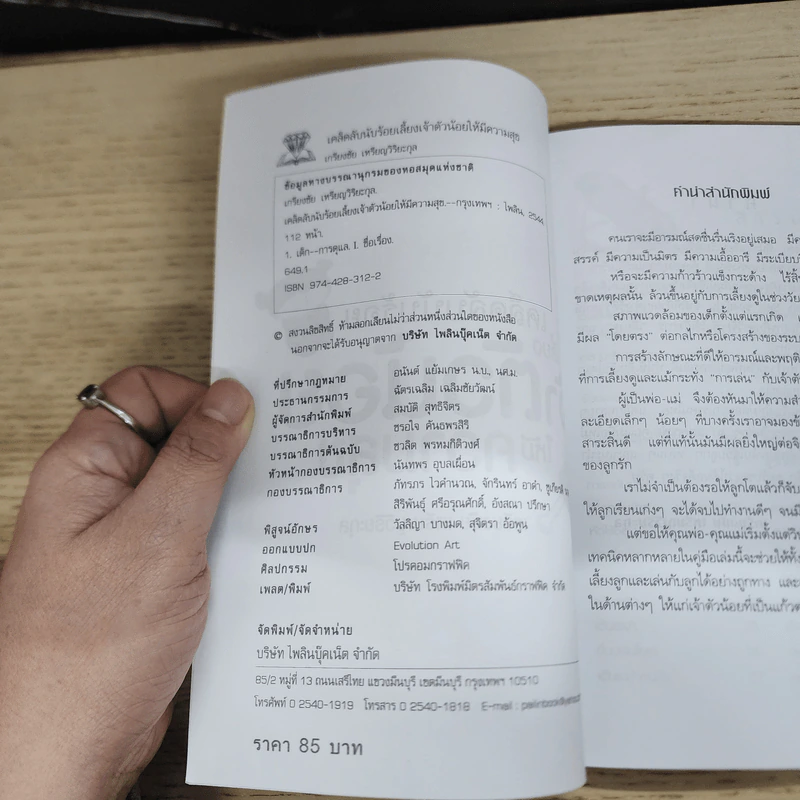 เคล็ดลับนับร้อยเลี้ยงเจ้าตัวน้อยให้มีความสุข
เกรียงชัย เหรียญวิริยะกุล
ข้อมูลทางบรรณานุกรมของหอสมุดแห่งชาติ
เกรียงชัย เหรียญวิริยะกุล.
เคล็ดลับนับร้อยเลี้ยงเจ้าตัวน้อยให้มีความสุข.--กรุงเทพฯ : ไพลิน, 2544
112 หน้า.
1. เด็ก--การดูแล. I. ชื่อเรื่อง.
649.1
ISBN 974-428-312-2
© สงวนลิขสิทธิ์ ห้ามลอกเลียนไม่ว่าส่วนหนึ่งส่วนใดของหนังสือ
นอกจากจะได้รับอนุญาตจาก บริษัท ไพลินบุ๊คเน็ต จำกัด
ที่ปรึกษากฎหมาย อนันต์ แย้มเกษร น.บ., นศ.ม.
ประธานกรรมการ ฉัตรเฉลิม เฉลิมชัยวัฒน์
ผู้จัดการสำนักพิมพ์ สมบัติ สุทธิจิตร
บรรณาธิการบริหาร ธรอใจ คันธพรสิริ
บรรณาธิการต้นฉบับ ชวลิต พรหมกิติวงศ์
หัวหน้ากองบรรณาธิการ นันทพร อุบลเผื่อน
กองบรรณาธิการ ภัทรภร ไวคำนวณ, จักรินทร์ อาดำ,
สิริพันธุ์ ศรีอรุณศักดิ์, อังสณา ปรึกษา
พิสูจน์อักษร วัลลิญา บางมด, สุจิตรา อ้อพูน
ออกแบบปก Evolution Art
ศิลปกรรม โปรคอมกราฟฟิค
เพลต/พิมพ์ บริษัท โรงพิมพ์มิตรสัมพันธ์กราฟฟิค จำกัด
จัดพิมพ์/จัดจำหน่าย
บริษัท ไพลินบุ๊คเน็ต จำกัด
85/2 หมู่ที่ 13 ถนนเสรีไทย แขวงมีนบุรี เขตมีนบุรี กรุงเทพฯ 10510
โทรศัพท์ 0 2540-1919 โทรสาร 0 2540-1818 E-mail :
ราคา 85 บาท
คำนำสำนักพิมพ์
คนเราจะมีอารมณ์สดชื่นรื่นเริงอยู่เสมอ
สรรค์ มีความเป็นมิตร มีความเอื้ออารี มีระเบียบ
หรือจะมีความก้าวร้าวแข็งกระด้าง
ขาดเหตุผลนั้น ล้วนขึ้นอยู่กับการเลี้ยงดูในช่วงวัย
สภาพแวดล้อมของเด็กตั้งแต่แรกเกิด
มีผล "โดยตรง" ต่อกลไกหรือโครงสร้างของระบบ
การสร้างลักษณะที่ดีให้อารมณ์และพฤติ
ที่การเลี้ยงดูและแม้กระทั่ง "การเล่น" กับเจ้าตัว
ผู้เป็นพ่อ-แม่ จึงต้องหันมาให้ความ
ละเอียดเล็กๆ น้อยๆ ที่บางครั้งเราอาจมอง
สาระสิ้นดี แต่ที่แท้นั้นมันมีผลยิ่งใหญ่ต่อ
ของลูกรัก
เราไม่จำเป็นต้องรอให้ลูกโตแล้วก็จับ
ให้ลูกเรียนเก่งๆ จะได้จบไปทำงานดีๆ จน
แต่ขอให้คุณพ่อ-คุณแม่เริ่มตั้งแต่
เทคนิคหลากหลายในคู่มือเล่มนี้จะช่วยให้
เลี้ยงลูกและเล่นกับลูกได้อย่างถูกทาง และ
ในด้านต่างๆ ให้แก่เจ้าตัวน้อยที่เป็นแก้ว